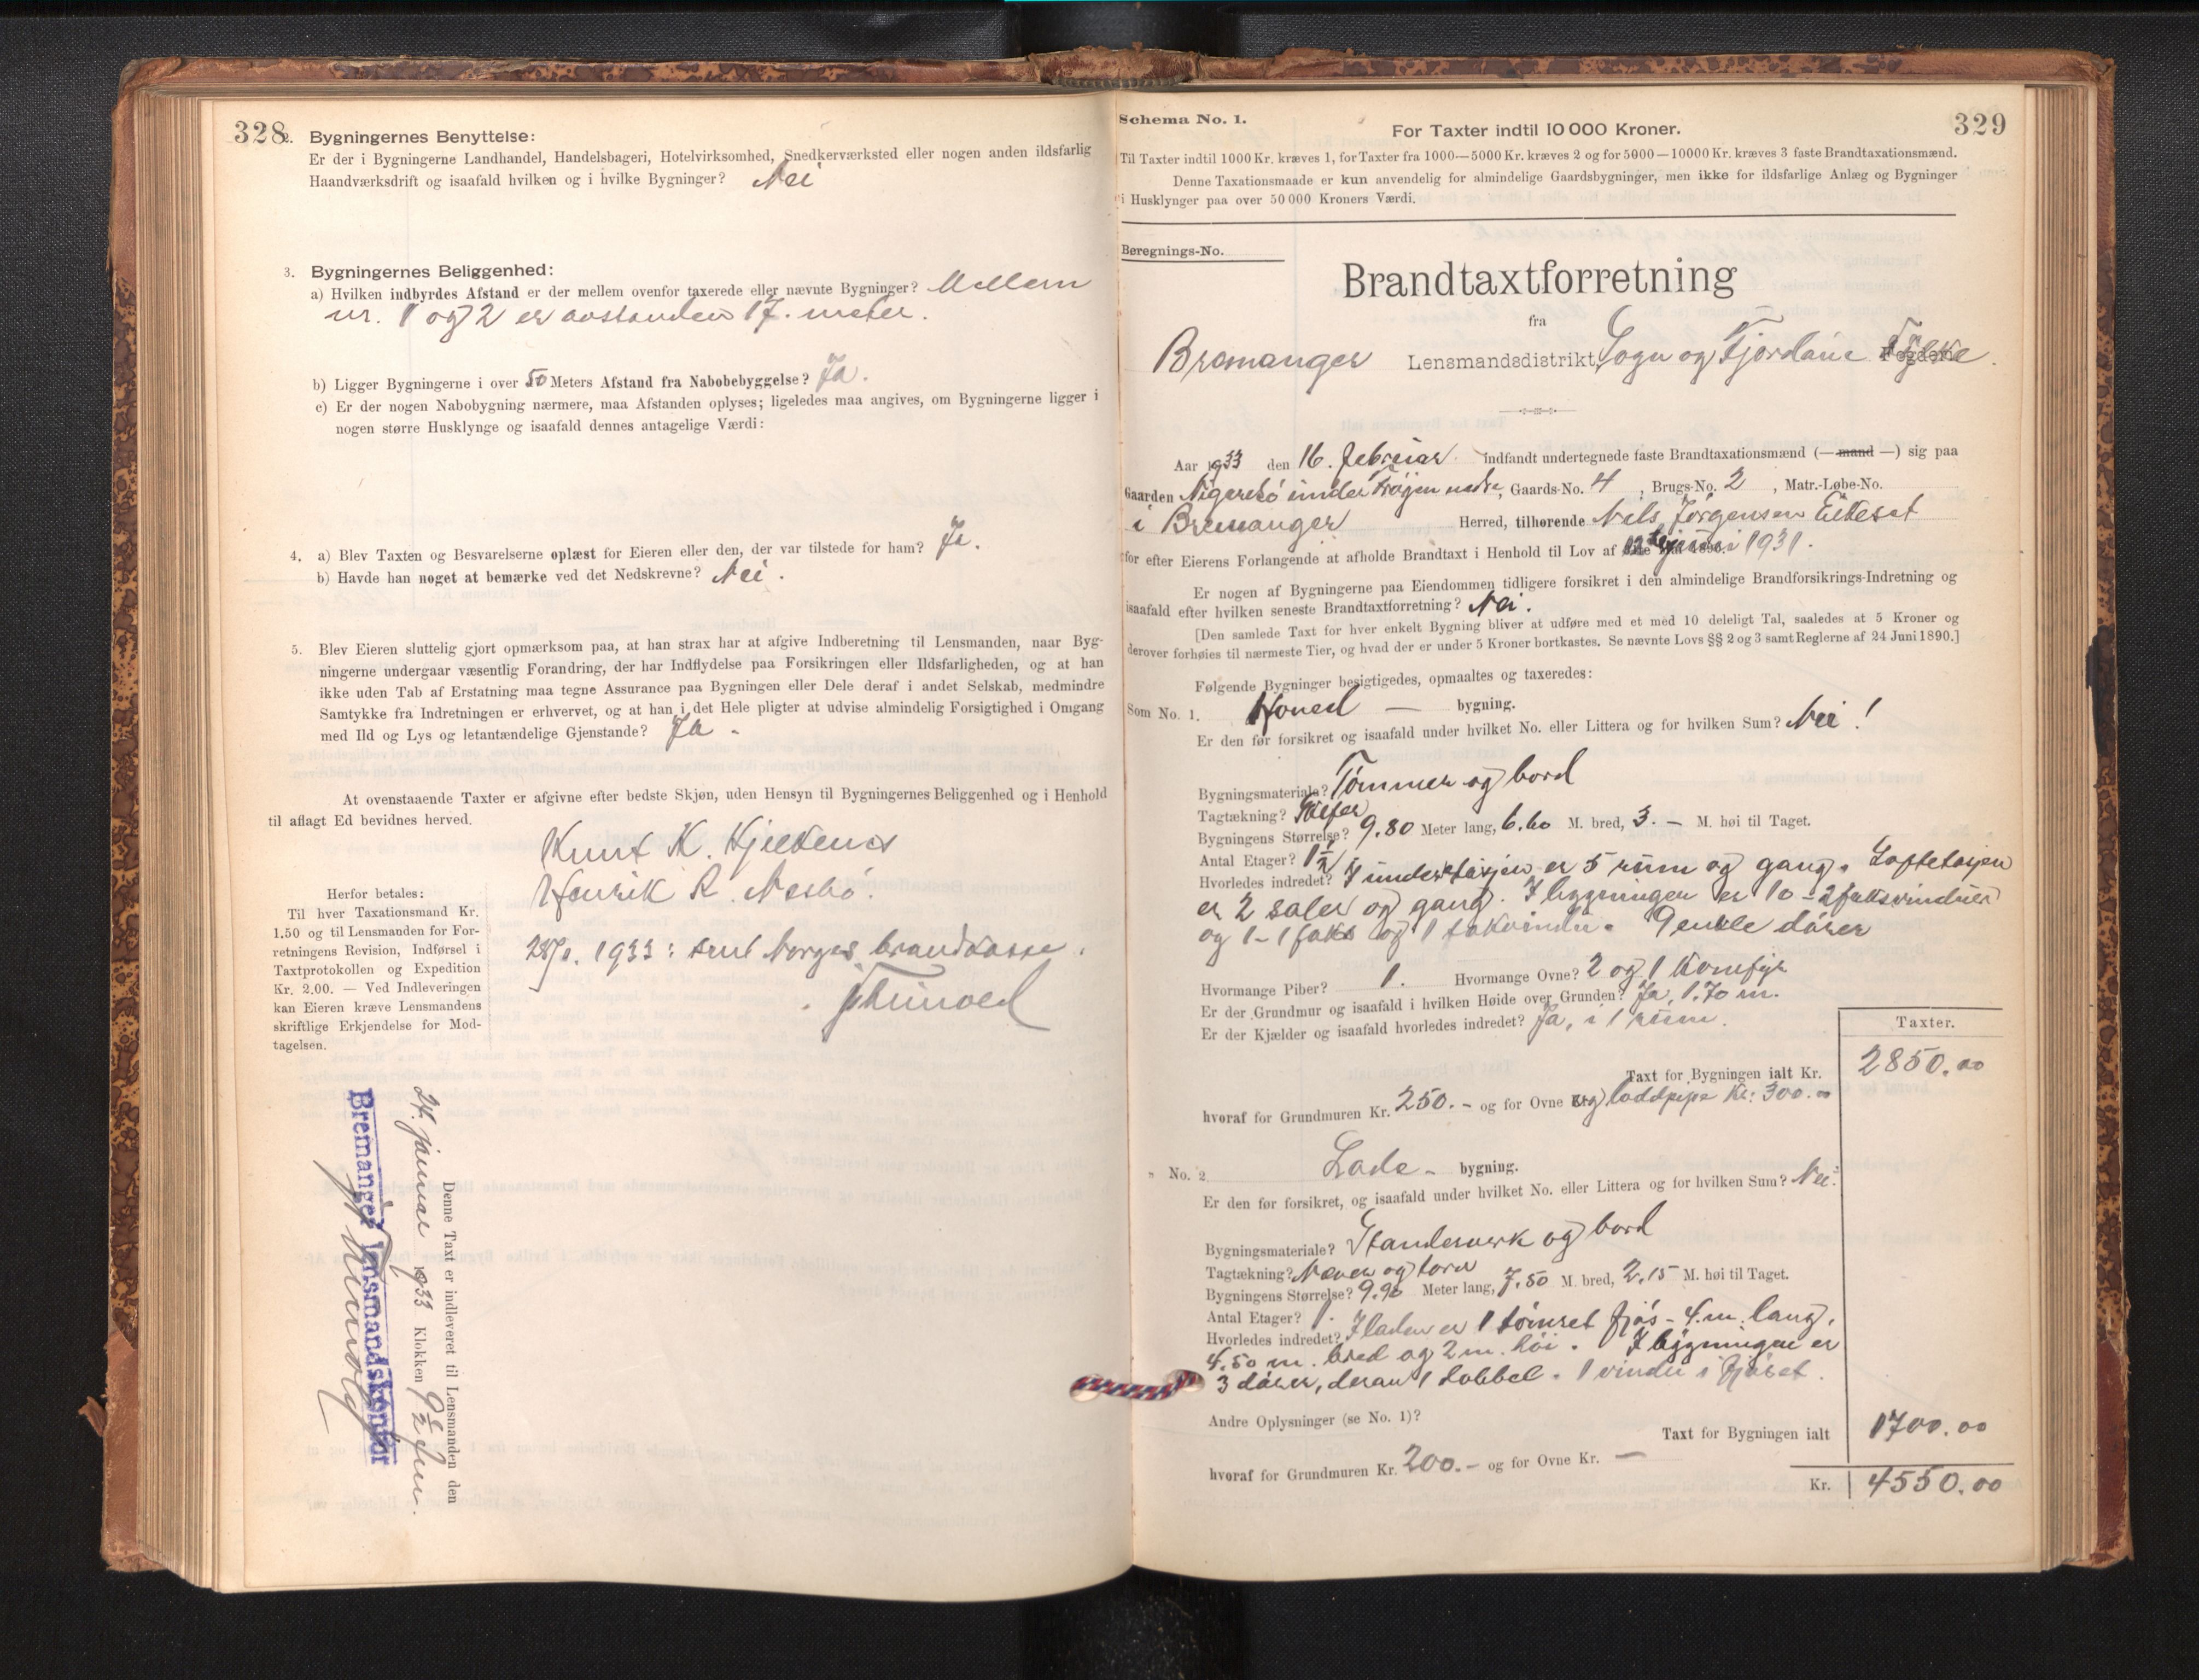 328
2. Bygningernes Benyttelse:
Er der i Bygningerne Landhandel, Handelsbageri, Hotelvirksomhed, Snedkerværksted eller nogen anden ildsfarlig
Haandværksdrift og isaafald hvilken og i hvilke Bygninger? Nei
3. Bygningernes Beliggenhed:
a) Hvilken indbyrdes Afstand er der mellem ovenfor taxerede eller nævnte Bygninger? Mellem
nr. 1 og 2 er avstanden 17. meter.
b) Ligger Bygningerne i over 50 Meters Afstand fra Nabobebyggelse? Ja.
c) Er der nogen Nabobygning nærmere, maa Afstanden oplyses; ligeledes maa angives, om Bygningerne ligger i
nogen større Husklynge og isaafald dennes antagelige Værdi:
4. a) Blev Taxten og Besvarelserne oplæst for Eieren eller den, der var tilstede for ham? Ja.
b) Havde han noget at bemærke ved det Nedskrevne? Nei.
5. Blev Eieren sluttelig gjort opmærksom paa, at han strax har at afgive Indberetning til Lensmanden, naar Byg-
ningerne undergaar væsentlig Forandring, der har Indflydelse paa Forsikringen eller Ildsfarligheden, og at han
ikke uden Tab af Erstatning maa tegne Assurance paa Bygningen eller Dele deraf i andet Selskab, medmindre
Samtykke fra Indretningen er erhvervet, og at han i det Hele pligter at udvise almindelig Forsigtighed i Omgang
med Ild og Lys og letantændelige Gjenstande? Ja.
At ovenstaaende Taxter er afgivne efter bedste Skjøn, uden Hensyn til Bygningernes Beliggenhed og i Henhold
til aflagt Ed bevidnes herved.
Knut K.
Henrik R. Nesbö.
1933: sent Norges brandkasse.
Herfor betales:
Til hver Taxationsmand Kr.
1.50 og til Lensmanden for For-
retningens Revision, Indførsel i
Taxtprotokollen og Expedition
Kr. 2.00. — Ved Indleveringen
kan Eieren kræve Lensmandens
skriftlige Erkjendelse for Mod-
tagelsen.
Denne Taxt er indleveret til Lensmanden den
24. januar 1933 Klokken 9
Bremanger lensmandskontor
329
Schema No. 1.
For Taxter indtil 10 000 Kroner.
Til Taxter indtil 1000 Kr. kræves 1, for Taxter fra 1000—5000 Kr. kræves 2 og for 5000—10000 Kr. kræves 3 faste Brandtaxationsmænd.
Denne Taxationsmaade er kun anvendelig for almindelige Gaardsbygninger, men ikke for ildsfarlige Anlæg og Bygninger
i Husklynger paa over 50 000 Kroners Værdi.
Beregnings-No.
Brandtaxtforretning
fra
Bremanger Lensmandsdistrikt, Sogn og Fjordane Fogderi Fylke.
Aar 1933 den 16. februar indfandt undertegnede faste Brandtaxationsmænd (— mand —) sig paa
Gaarden under nedre, Gaards-No. 4, Brugs-No. 2, Matr.-Løbe-No.
i Bremanger Herred, tilhørende Nils Jørgensen
for efter Eierens Forlangende at afholde Brandtaxt i Henhold til Lov af 1931.
Er nogen af Bygningerne paa Eiendommen tidligere forsikret i den almindelige Brandforsikrings-Indretning og
isaafald efter hvilken seneste Brandtaxtforretning? Nei.
[Den samlede Taxt for hver enkelt Bygning bliver at udføre med et med 10 deleligt Tal, saaledes at 5 Kroner og
derover forhøies til nærmeste Tier, og hvad der er under 5 Kroner bortkastes. Se nævnte Lovs §§ 2 og 3 samt Reglerne af 24 Juni 1890.]
Følgende Bygninger besigtigedes, opmaaltes og taxeredes:
Som No. 1. Hoved — bygning.
Er den før forsikret og isaafald under hvilket No. eller Littera og for hvilken Sum? Nei!
Bygningsmateriale? Tømmer og bord
Tagtækning? Skifer
Bygningens Størrelse? 9.80 Meter lang, 6.60 M. bred, 3. — M. høi til Taget.
Antal Etager? 1½
Hvorledes indredet? I underetasjen er 5 rum og gang. Loftetasjen
er 2 saler og gang. I bygningen er 10 - 2 faksvinduer
og 1 - 1 faks og 1 takvindu. 9 enkle dører
Hvormange Piber? 1. Hvormange Ovne? 2 og 1 komfyr
Er der Grundmur og isaafald i hvilken Høide over Grunden? Ja, 1.70 m.
Er der Kjælder og isaafald hvorledes indredet? Ja, i 1 rum.
Taxter.
Taxt for Bygningen ialt Kr. 2850.00
hvoraf for Grundmuren Kr. 250.- og for Ovne og loddpipe Kr: 300.00
" No. 2. Lade - bygning.
Er den før forsikret, og isaafald under hvilket No. eller Littera og for hvilken Sum? Nei.
Bygningsmateriale? Standerverk og bord
Tagtækning? Never og torv
Bygningens Størrelse? 9.90 Meter lang, 7.50 M. bred, 2.15 M. høi til Taget.
Antal Etager? 1.
Hvorledes indredet? I laden er 1 tømret fjøs - 4. m. lang,
4.50 m. bred og 2 m. høi. I bygningen er
3 dører, derav 1 dobbel. 1 vindu i fjøset.
Andre Oplysninger (se No. 1)?
Taxt for Bygningen ialt 1700.00
hvoraf for Grundmuren Kr. 200.- og for Ovne Kr. —
Kr. 4550.00